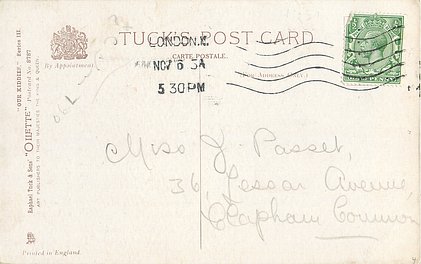 TUCK'S POST CARD
CARTE POSTALE.
(FOR ADDRESS ONLY.)
By Appointment.
LONDON.
NOV 6
5 30 PM
"OUR KIDDIES." Series III.
Raphael Tuck & Sons' "OILETTE" Postcard No. 8767
ART PUBLISHERS TO THEIR MAJESTIES THE KING & QUEEN.
Miss J. Passet,
36, Lessar Avenue,
Clapham Common
Printed in England.